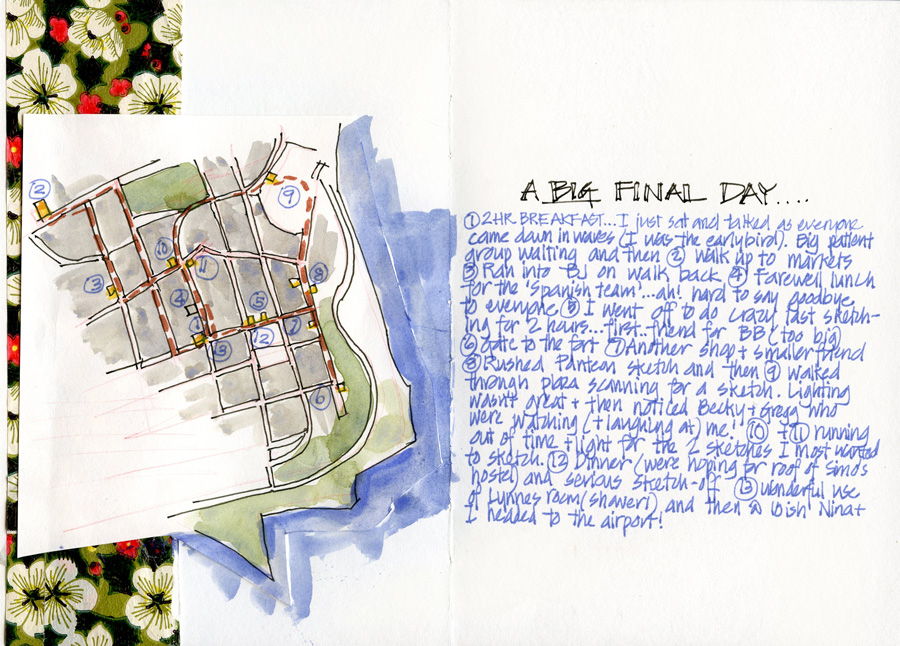 A BIG FINAL DAY....
① 2HR BREAKFAST...I just sat and talked as everyone
came down in waves (I was the early bird). Big patient
group waiting and then ② walk up to markets
③ Ran into BJ on walk back ④ Farewell lunch
for the 'Spanish team'...ah! hard to say goodbye
to everyone ⑤ I went off to do crazy fast sketch-
ing for 2 hours...first...friend for BB (too big)
⑥ Gate to the fort ⑦ Another shop + smaller friend
⑧ Rushed Panteon sketch and then ⑨ walked
through plaza scanning for a sketch. Lighting
wasn't great + then noticed Becky + Gregg who
were watching (+ laughing at) me! ⑩ + ⑪ running
out of time + light for the 2 sketches I most wanted
to sketch. ⑫ Dinner (were hoping for roof of Simo's
hostel) and serious sketch-off ⑬ wonderful use
of Lynne's room (shower!) and then @ 10ish Nina +
I headed to the airport!
②
⑨
⑩
⑪
③
⑧
④
⑤
①
⑦
⑬
⑫
⑥